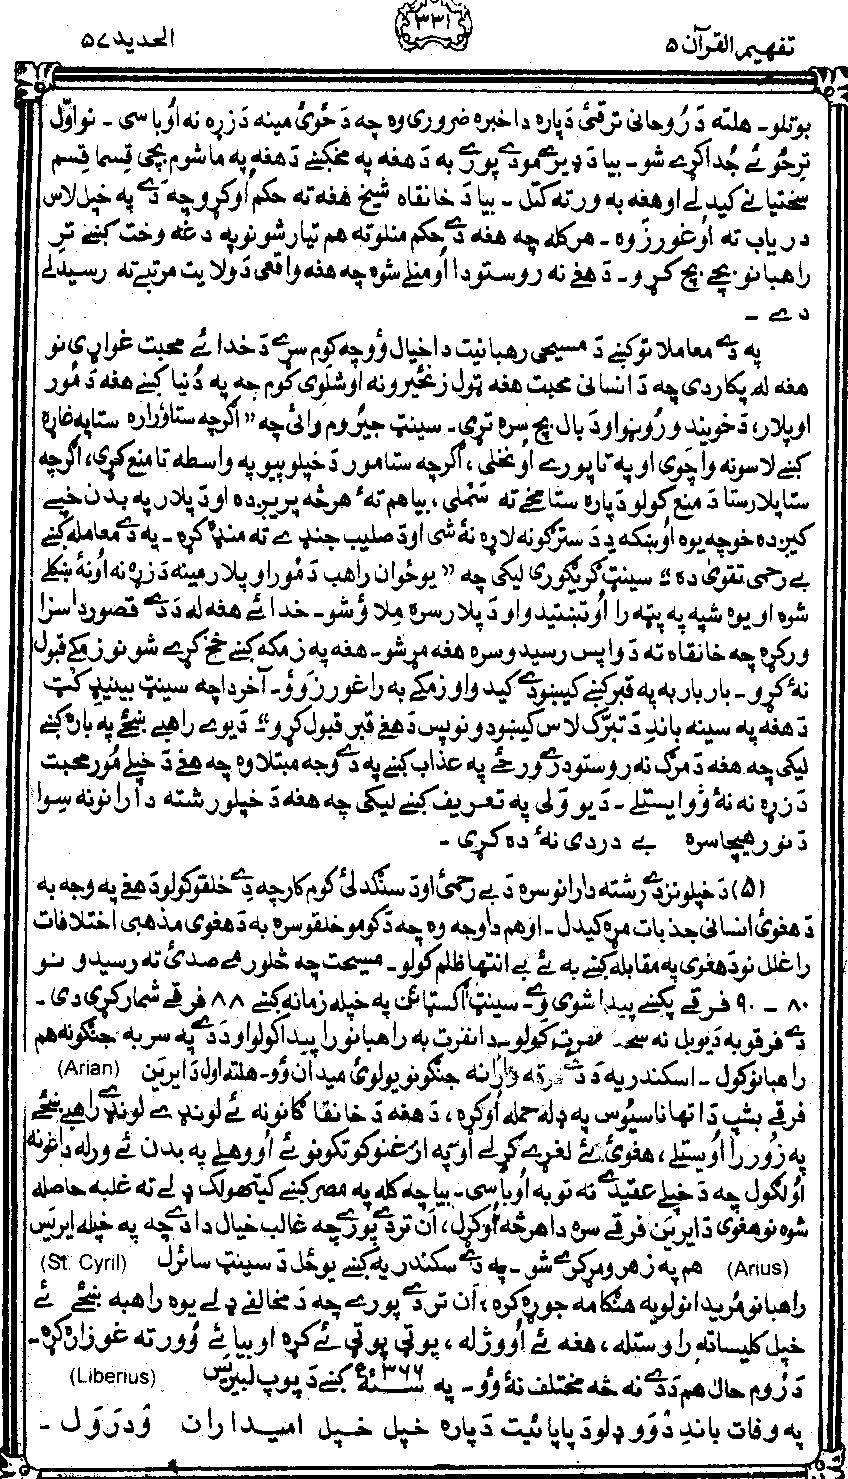 تفهیم القرآن ۵
۳۳۱
الحدید ۵۷
بوتلو۔ هلته دَ رُوحانی ترقئ دَپاره دا خبره ضروری وه چه دَ خوئ مینه دَ زړه نه اُوباسی ۔ نو اوّل
ترِ خوئے جُدا کړے شو۔ بیا دَ ډیرے مودے پورے به دَ هغه په مخکښے دَ هغه په ماشوم بچی قِسما قِسم
سختیانے کیدلے او هغه به ورته کتل ۔ بیا دَ خانقاه شیخ هغه ته حکم اُوکړو چه دے په خپل لاس
دریاب ته اُوغورزَوه ۔ هر کله چه هغه دے حکم منلو ته هم تیار شو نو په دغه وخت کښے ترِ
راهبانو بچے بچ کړو۔ دَ هغے نه روستو دا اُومنلے شوه چه هغه واقعی دَ ولایت مرتبے ته رسیدلے
دے ۔
په دے معاملاتو کښے دَ مسیحی رهبانیت دا خیال وُو چه کوم سړے دَ خدائے محبت غواړی نو
هغه له پکار دی چه دَ انسانی محبت هغه ټول زنځیرونه اوشلوی کوم چه په دُنیا کښے هغه دَ مور
او پلار، دَ خویند و رُوڼو او دَ بال بچ سره تړی۔ سینټ جیروم وائی چه "اگرچه ستا وراره ستا په غاړه
کښے لاسونه واچوی او په تا پورے اُونخلی، اگرچه ستا مور دَ خپلو پیو په واسطه تا منع کړی، اگرچه
ستا پلار ستا دَ منع کولو دَپاره ستا مخے ته سَملی، بیا هم ته هر څه پریږده او دَ پلار په بدن خپے
کیږده خو چه یوه اُوښکه دِ دَ سترګو نه لاړه نهٔ شی او دَ صلیب جنډے ته منډه کړه۔ په دے معامله کښے
بے رحمی تقویٰ ده"۔ سینټ ګریګوری لیکی چه "یو ځوان راهب دَ مور او پلار مینه دَ زړه نه اُونهٔ ښکلے
شوه او یوه شپه په پټه را اُوتښتیدو او دَ پلار سره مِلاؤ شو۔ خدائے هغه له دَ دے قصور دا سزا
ورکړه چه خانقاه ته دَ واپس رسیدو سره هغه مړ شو۔ هغه په زمکه کښے ښخ کړے شو نو زمکے قبول
نهٔ کړو۔ بار بار به په قبر کښے کیښودے کیدو او زمکے به راغورزَوؤ۔ آخر دا چه سینټ بینیډکټ
دَ هغه په سینه باندِ دَ تبرک لاس کیښودو نو پس دَ هغے قبر قبول کړو"۔ دَ یوے راهبے ښځے په باره کښے
لیکی چه هغه دَ مرګ نه روستو درے ورځے په عذاب کښے په دے وجه مبتلا وه چه هغے دَ خپلے مور محبت
دَ زړه نه نهٔ وُو ایستلے۔ دَ یو ولی په تعریف کښے لیکی چه هغه دَ خپلو رشته دارانو نه سِوا
دَ نور هیچا سره بے دردی نهٔ ده کړی ۔
(۵) دَ خپلو نزدے رشته دارانو سره دَ بے رحمئ او دَ سنګدلئ کوم کار چه دِے خلقو کولو دَ هغے په وجه به
دَ هغوئ انسانی جذبات مړه کیدل۔ او هم دا وجه وه چه دَ کومو خلقو سره به دَ هغوی مذهبی اختلافات
راغلل نو دَ هغوی په مقابله کښے به ئے بے انتها ظلم کولو۔ مسیحت چه څلورمے صدئ ته رسیدو نو
۸۰ ۔ ۹۰ فرقے پکښے پیدا شوی وے۔ سینټ آګسټائن په خپله زمانه کښے ۸۸ فرقے شمار کړی دی۔
دے فرقو به دَ یو بل نه سخت نفرت کولو۔ دا نفرت به راهبانو را پیدا کولو او دَ دے په سر به جنګونه هم
راهبانو کول۔ اسکندریه دَ دے فرقه وارانه جنګونو یو لوئ میدان وُو۔ هلته اول دَ ایرین (Arian)
فرقے بشپ دَ اتهاناسیوس په ډله حمله اُوکړه، دَ هغه دَ خانقا ګانو نه ئے لونډے لونډے راهبے ښځے
په زور را اُویستلے، هغوئ ئے لغړے کړلے او په ازغنو کوتکو نو ئے اُووهلے په بدن ئے ورله داغونه
اُولګول چه دَ خپلے عقیدے نه توبه اُوباسی۔ بیا چه کله په مصر کښے کیتهولک ډلے ته غلبه حاصله
شوه نو هغوی دَ ایرین فرقے سره دا هر څه اُوکړل، ان تردے پورے چه غالب خیال دا دے چه په خپله ایریس
(Arius) هم په زهرو مړ کړے شو۔ په دے سکندریه کښے یو ځل دَ سینټ سائرل (St. Cyril)
راهبانو مُریدانو لویه هنګامه جوړه کړه، ان تردے پورے چه دَ مخالفے ډلے یوه راهبه ښځے ئے
خپل کلیسا ته راوستله، هغه ئے اُووژله، بوټی بوټی ئے کړه او بیا ئے وُور ته غوزار کړه۔
دَ رُوم حال هم دَ دے نه څه مختلف نهٔ وُو۔ په سنهٔ ۳۶۶ء کښے دَ پوپ لبریس (Liberius)
په وفات باندِ دوَو ډلو دَ پاپائیت دَپاره خپل خپل امیداران وُدرَوَل ۔